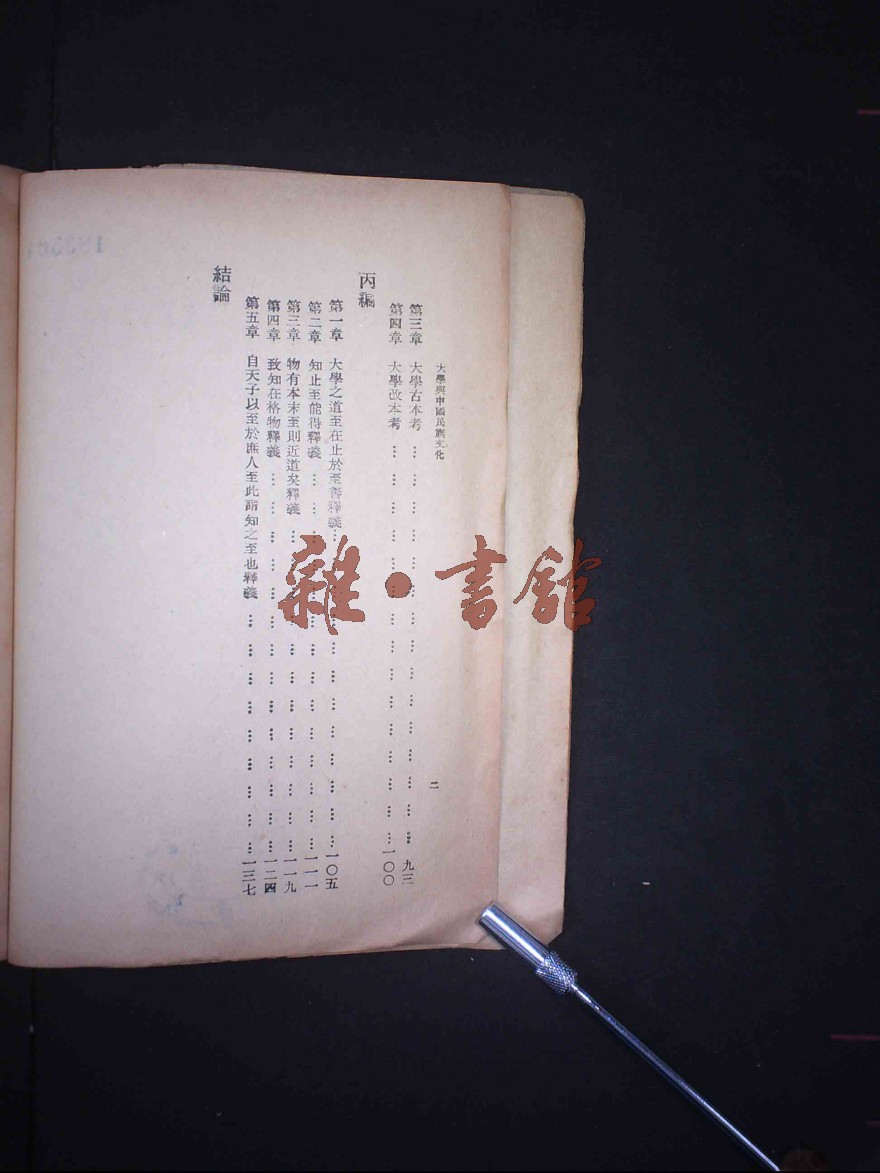 大學與中國民族文化
二
第三章 大學古本考 …………………… 九三
第四章 大學改本考 …………………… 一〇〇
丙編
第一章 大學之道至在止於至善釋義 …………………… 一〇五
第二章 知止至能得釋義 …………………… 一一一
第三章 物有本末至則近道矣釋義 …………………… 一一九
第四章 致知在格物釋義 …………………… 一二四
第五章 自天子以至於庶人至此謂知之至也釋義 …………………… 一三七
結論
雜·書館